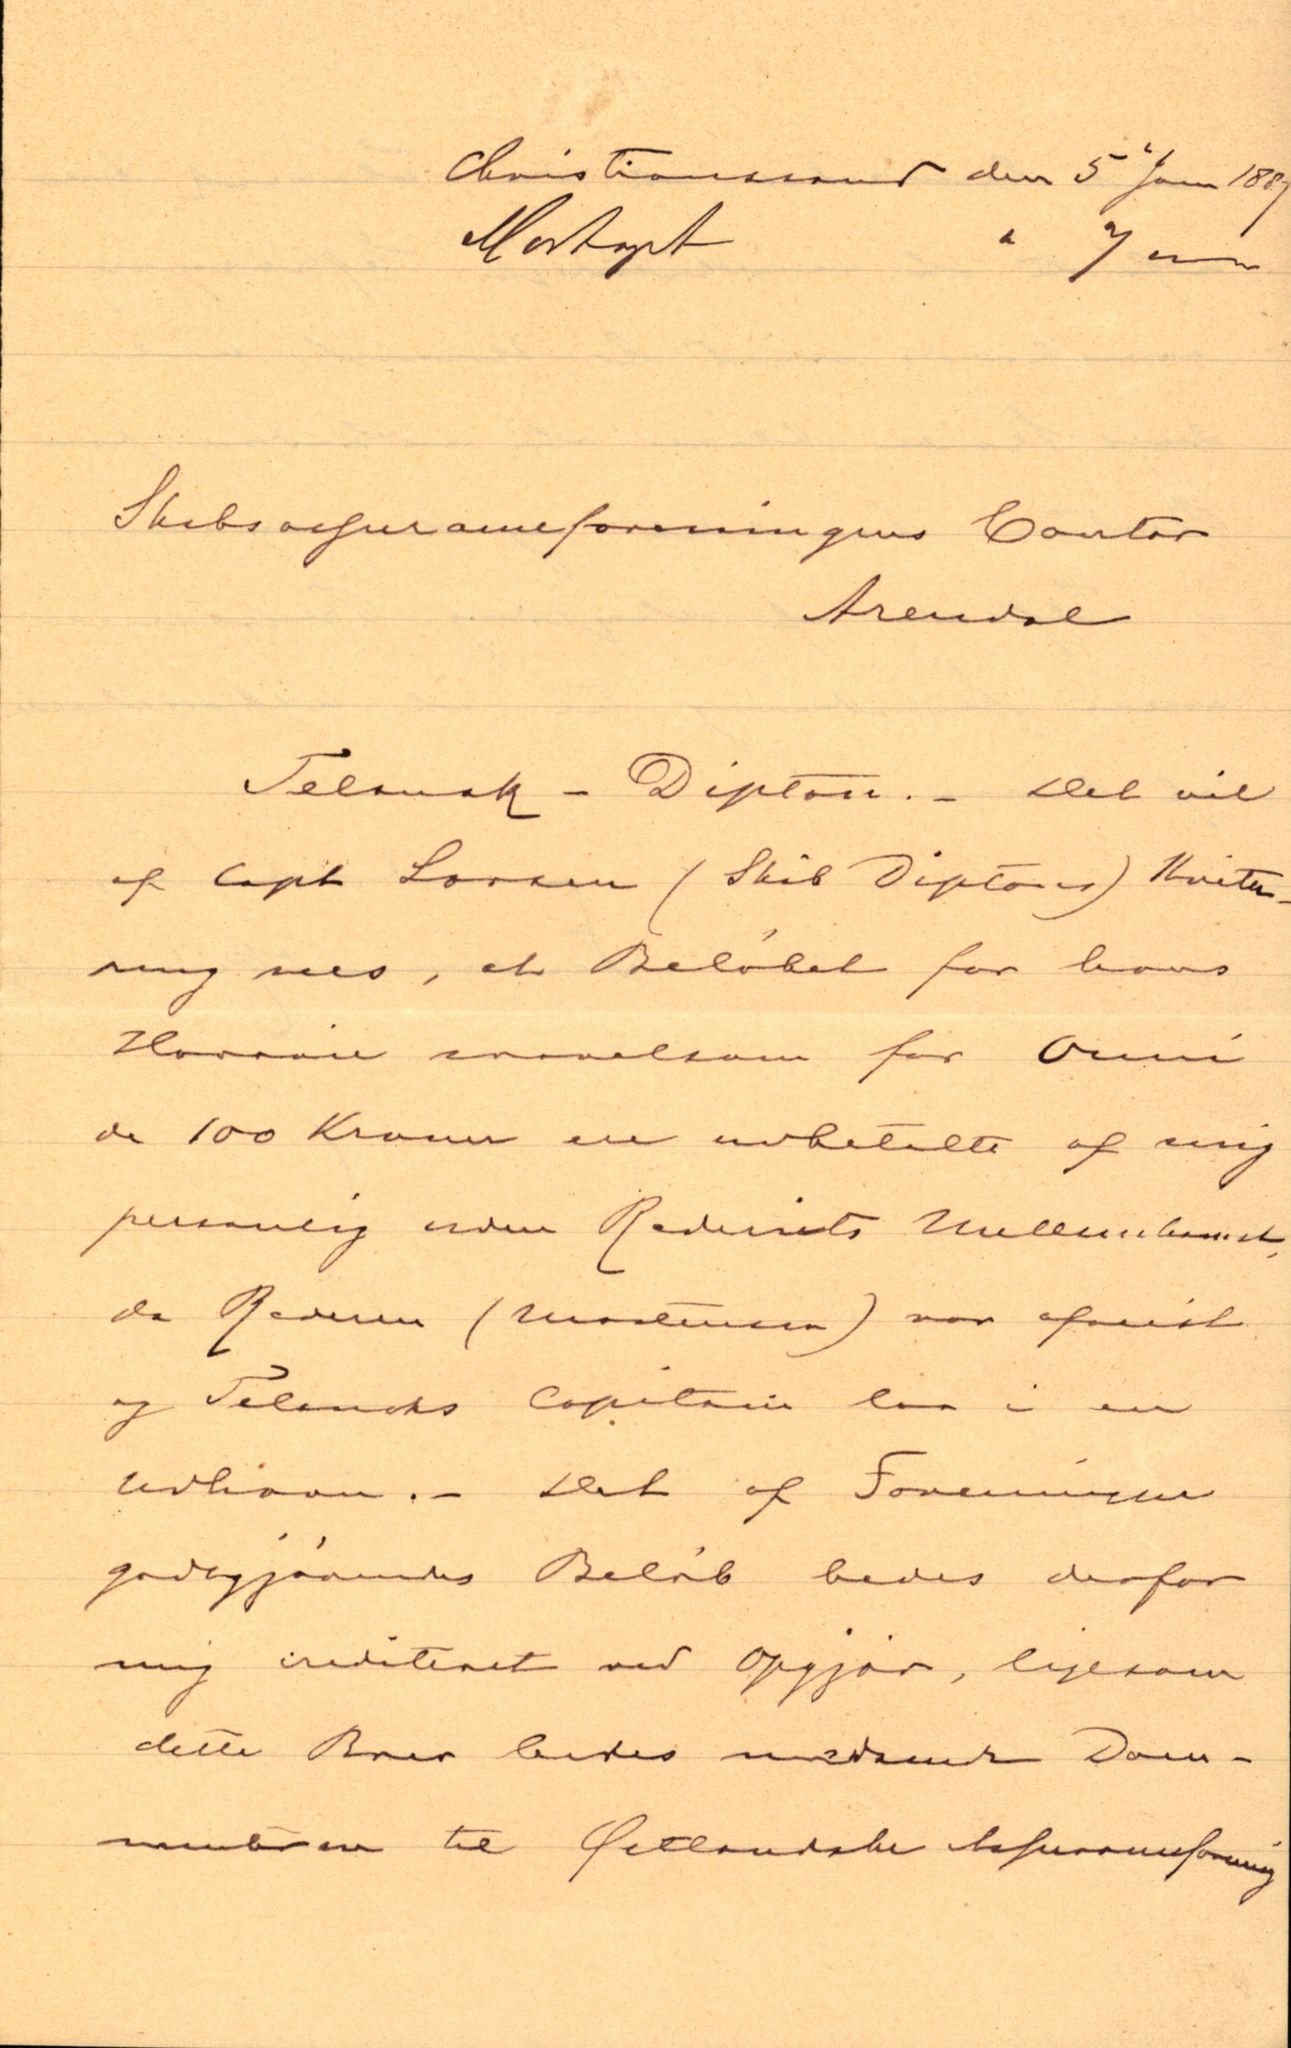 Christianssand den 5 Jan 1887
Modtagt " 7 "
Skibsassuranceforeningens Contor
Arendal
Telanak – Dipton. – Det vil
af Capt Larsen (Skib Diptons) Kvite-
ring sees, at Beløbet for hans
Havarie saavelsom for
de 100 Kroner ere udbetalte af mig
personlig uden Rederiets Mellemkomst,
da Rederen (Mortensen) var afreist
og Telanaks Capitain laa i en
Udhavn. – Det af Foreningen
godtgjørendes Beløb bedes derfor
mig crediteret ved Opgjør, ligesom
dette Brev bedes medsendt Docu-
menterne til Østlandske Assuranceforening